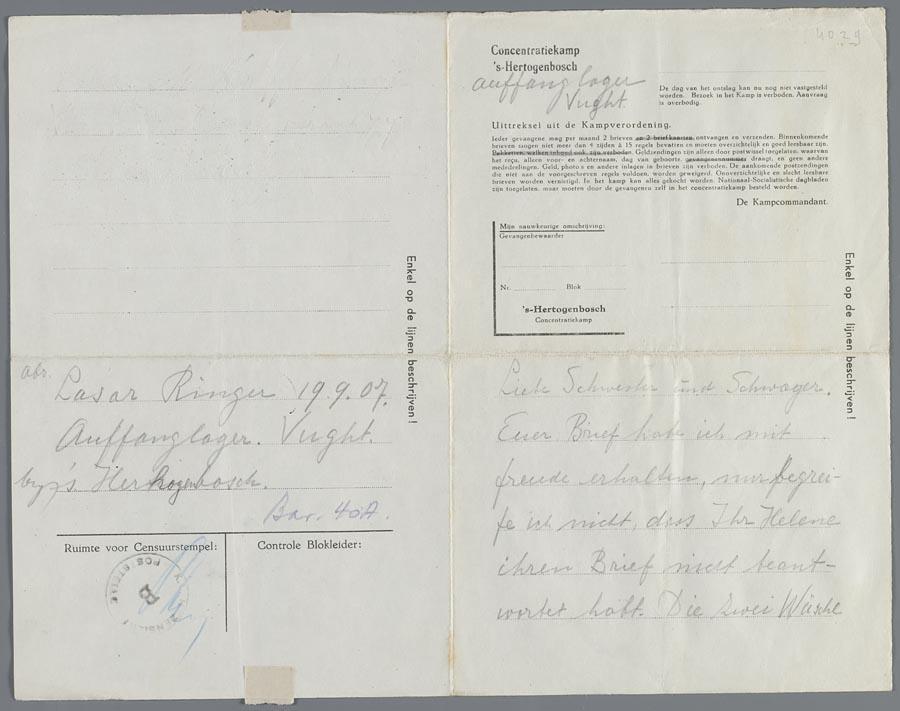 abs.
Lasar Ringer 19.9.07.
Auffanglager. Vught.
by 's. Hertogenbosch.
Bar. 40A.
Enkel op de lijnen beschrijven!
Ruimte voor Censuurstempel:
Controle Blokleider:
POSTSTELLE
B
4029
Concentratiekamp
's-Hertogenbosch
Auffanglager
Vught.
De dag van het ontslag kan nu nog niet vastgesteld
worden. Bezoek in het Kamp is verboden. Aanvraag
is overbodig.
Uittreksel uit de Kampverordening.
Ieder gevangene mag per maand 2 brieven en 2 briefkaarten ontvangen en verzenden. Binnenkomende
brieven mogen niet meer dan 4 zijden à 15 regels bevatten en moeten overzichtelijk en goed leesbaar zijn.
Pakketten, welken inhoud ook, zijn verboden. Geldzendingen zijn alleen door postwissel toegelaten, waarvan
het reçu, alleen voor- en achternaam, dag van geboorte, gevangenennummer draagt, en geen andere
mededeelingen. Geld, photo's en andere inlagen in brieven zijn verboden. De aankomende postzendingen
die niet aan de voorgeschreven regels voldoen, worden geweigerd. Onoverzichtelijke en slecht leesbare
brieven worden vernietigd. In het kamp kan alles gekocht worden. Nationaal-Socialistische dagbladen
zijn toegelaten, maar moeten door de gevangenen zelf in het concentratiekamp besteld worden.
De Kampcommandant.
Mijn nauwkeurige omschrijving:
Gevangenbewaarder
Nr. Blok
's-Hertogenbosch
Concentratiekamp
Enkel op de lijnen beschrijven!
Liebe Schwester und Schwager.
Euer Brief habe ich mit
freude erhalten, nur begrei-
fe ich nicht, dass Ihr Helene
ihren Brief nicht beant-
wortet habt. Die zwei Wäsche